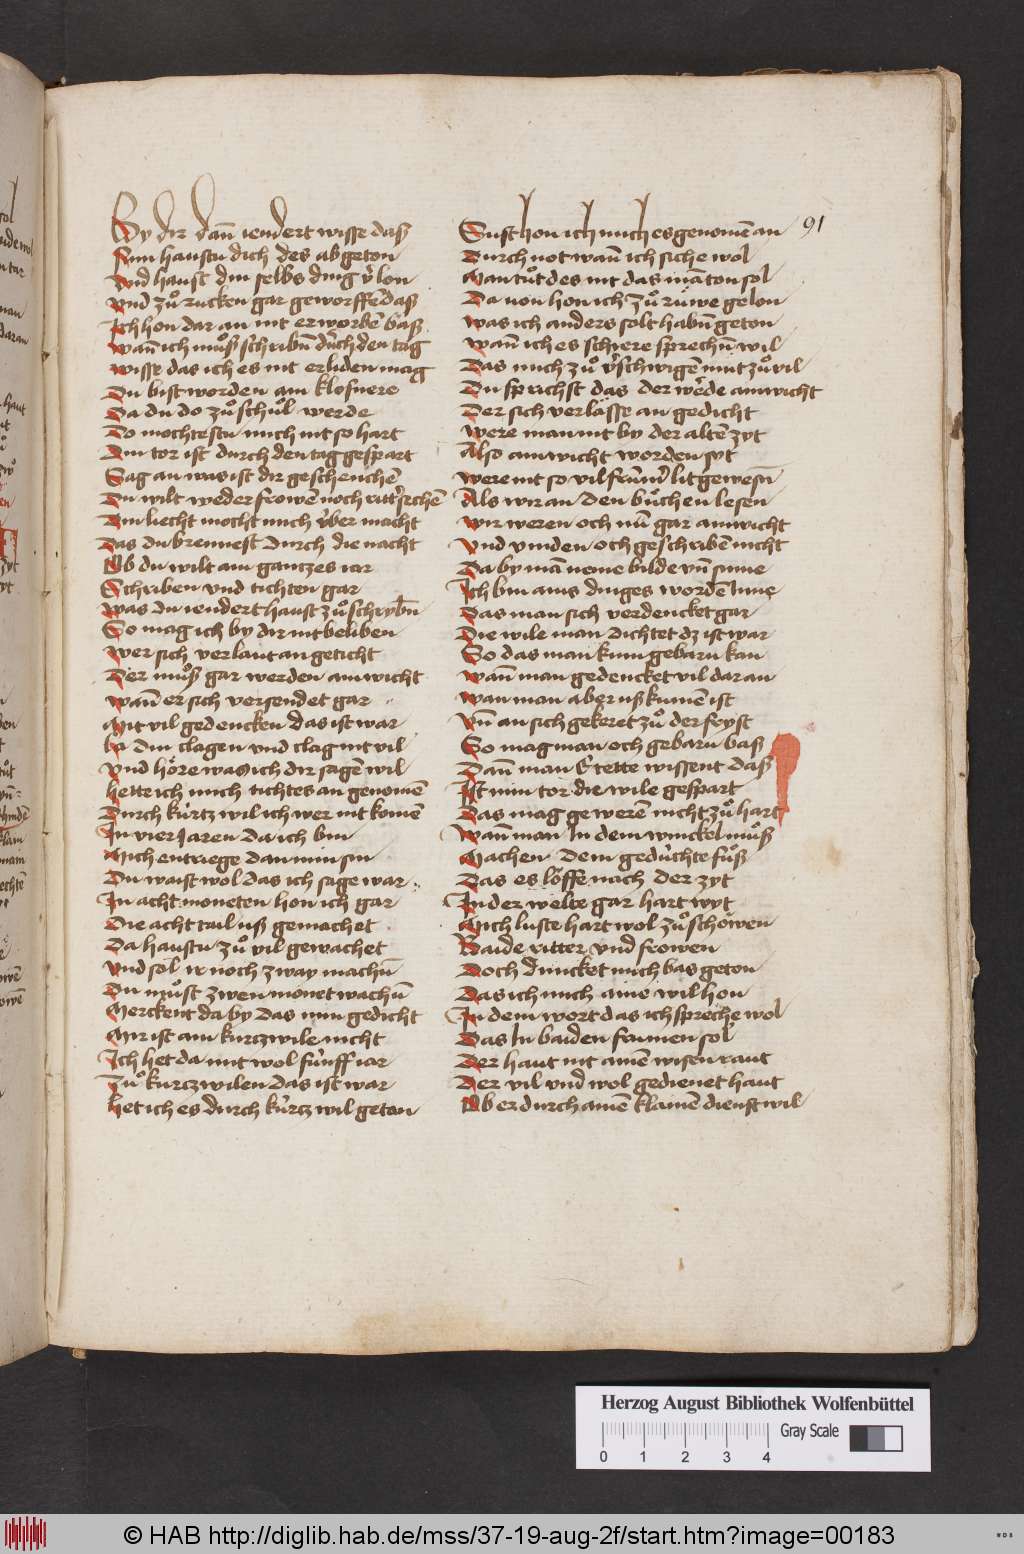 By dir dañ iendert wisse daß
Nun haustu dich des abgeton
Vnd haust din selbs ding v̓lon
Vnd zuͦ rucken gar geworffē daß
Ich hon dar an nit erworbē baß
Wañ ich muͦß schribn̄ durch den tag
Wisse das ich es nit erliden mag
Du bist worden ain klosnere
Da du do zuͦ schuͦl werde
Do mochtestu mich nit so hart
Din tor ist durch den tag gespart
Sag an was ist dir geschenchē
Du wilt weder frowē noch ritt̓
Din liecht mocht mich v̓ber macht
Das du brennest durch die nacht
Ob du wilt ain gantzes iar
Schriben vnd tichten gar
Was du iendert haust zuͦ schrybn̄
So mag ich by dir nit beliben
Wer sich verlaut an geticht
Der muͦß gar werden amwicht
Wañ er sich versendet gar
Mit vil gedencken das ist war
La din clagen vnd clag nit vil
Vnd höre was ich dir sagē wil
Hette ich mich tichtes an genomē
Durch kurtzwil ich wer nit komē
In vier Jaren da ich bin
Mich entriege dan min sin
Du waist wol das ich sage war
In acht moneten hon ich gar
Die acht tail uß gemachet
Da haustu zuͦ vil gewachet
Vnd sol ir noch zway machn̄
Du muͦst zwen monet wachn̄
Merckent da by das min gedicht
Mir ist ain kurczwile nicht
Ich het da mit wol funff iar
Zuͦ kurczwilen das ist war
Het ich es durch kurtzwil getan
Sust hon ich mich es genomē an
91
Durch not wañ ich siche wol
Man tuͦt des nit das mā ton sol
Da von hon ich zuͦ ruwe gelon
Was ich anders solt habn̄ geton
Wann ich es schiere sprechn̄ wil
Das mich zuͦ v̓schwigē mut zuͦ vil
Du sprichst das der werde amwicht
Der sich verlässe an gedicht
Were man nit by der altē zyt
Also amwicht worden syt
Were nit so vil frumer lit gewesn̄
Als wir an den buͦchen lesen
Wir weren och nū gar amwicht
Vnd vinden och geschriben nicht
Da by mā neme bilde vn̄ sinne
Ich bin ains dinges wordē Inne
Das man sich verdencket gar
Die wile man dichtet dz ist war
So das man kum gebarn kan
Wañ man gedencket vil daran
Wan man aber uß kumē ist
Vn̄ an sich gekeret zuͦ der fryst
So mag man och gebarn baß
Dañ man E tette wissent daß
Ist min tor die wile gespart
Das mag geweren nicht zuͦ hart
Wañ man In dem winckel muͦß
Machen dem gedichte fuͦß
Das es löffe nach der zyt
In der welte gar hart wyt
Mich luste hart wol zuͦ schowen
Baide ritter vnd frowen
Doch duncket mich bas geton
Das ich mich ains wil hon
In dem wort das ich spreche wol
Das In baiden frumen sol
Der haut nit ainē wisen raut
Der vil vnd wol gedienet haut
Ob er durch ainē klainē dienst wil
Herzog August Bibliothek Wolfenbüttel
0 1 2 3 4
Gray Scale
© HAB http://diglib.hab.de/mss/37-19-aug-2f/start.htm?image=00183